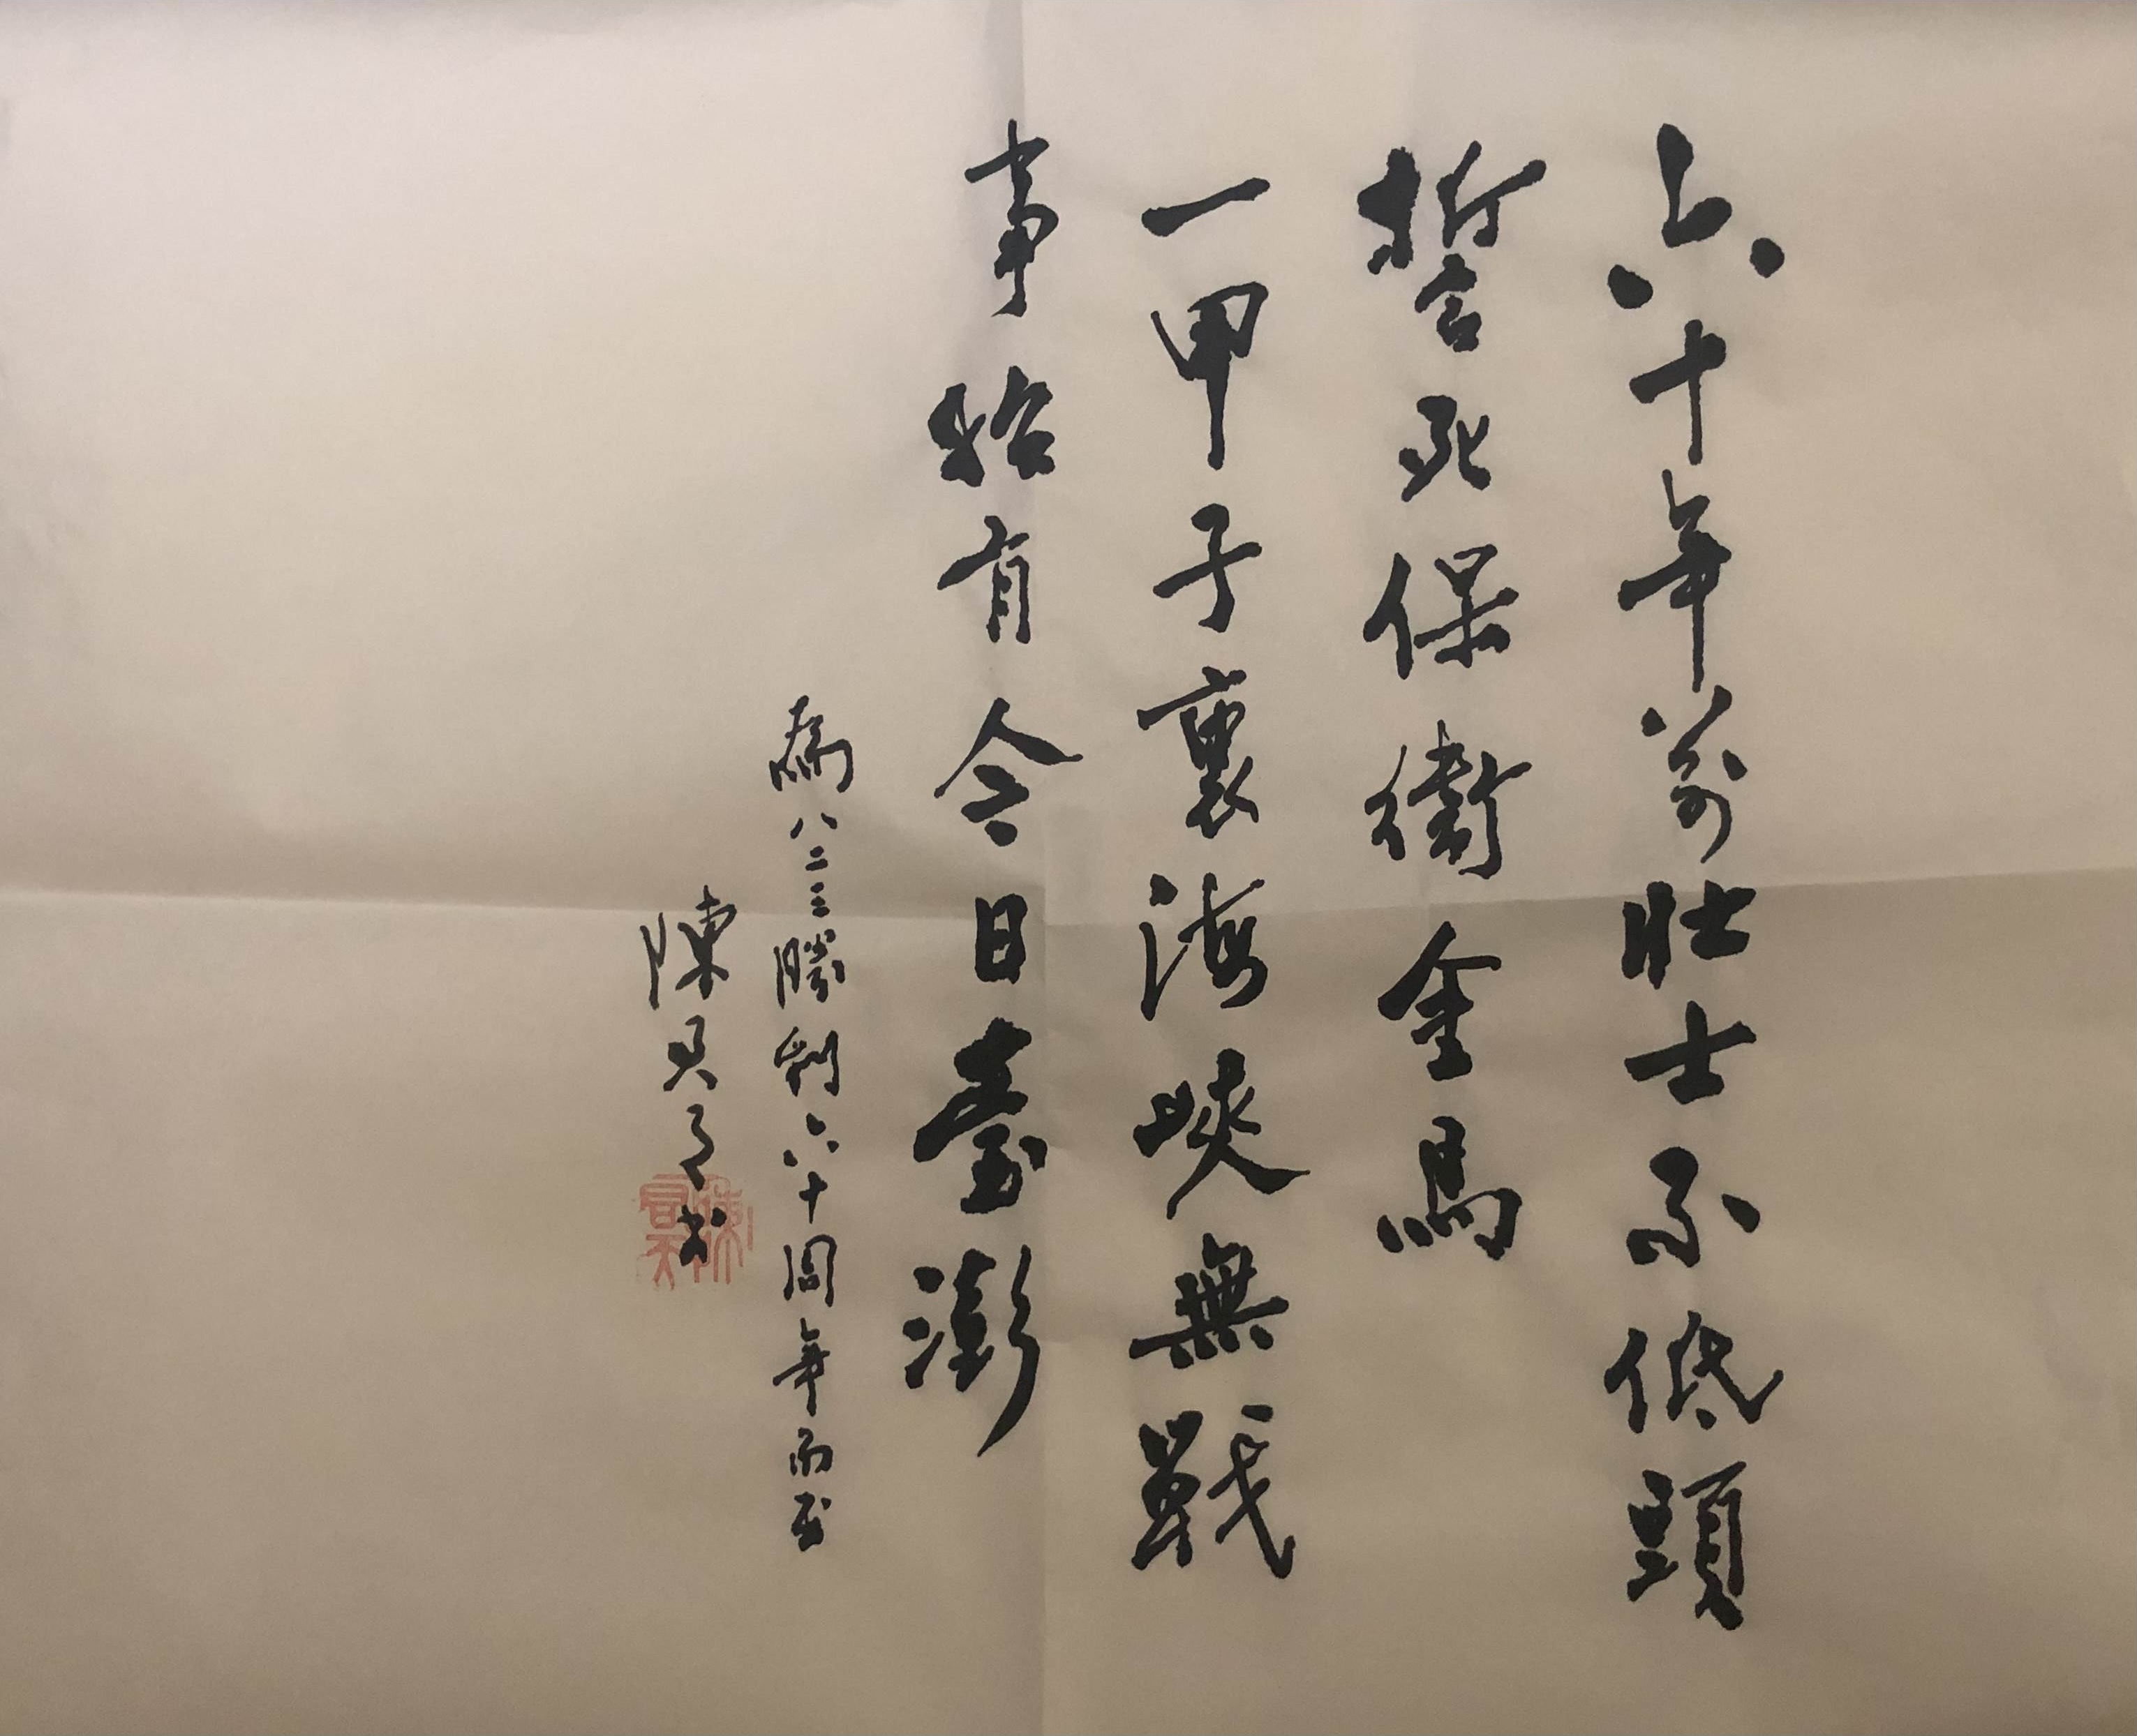 六十年前壯士不低頭
誓死保衛金馬
一甲子裏海峽無戰
事始有今日臺澎
為八二三勝利六十周年而書
陳